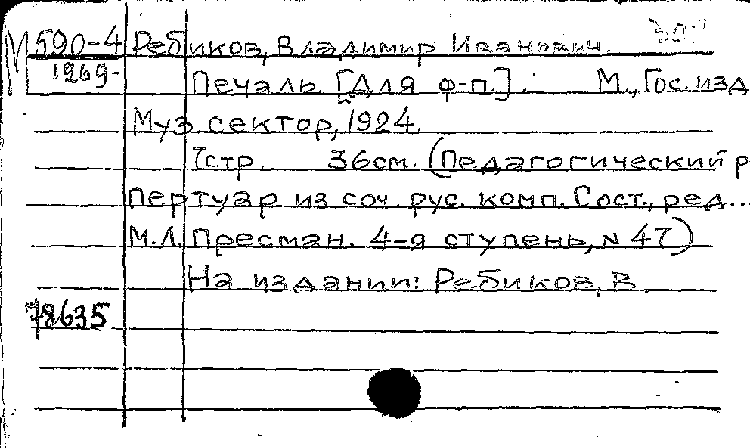 М 590-4 Ребиков, Владимир Иванович.
1969- Печаль [Для ф-п.]. М., Гос. изд
Муз. сектор, 1924.
7стр. 36см. (Педагогический р
пертуар из соч. рус. комп. Сост., ред...
М.Л. Пресман. 4-я ступень, N 47)
На издании: Ребиков, В.
78635